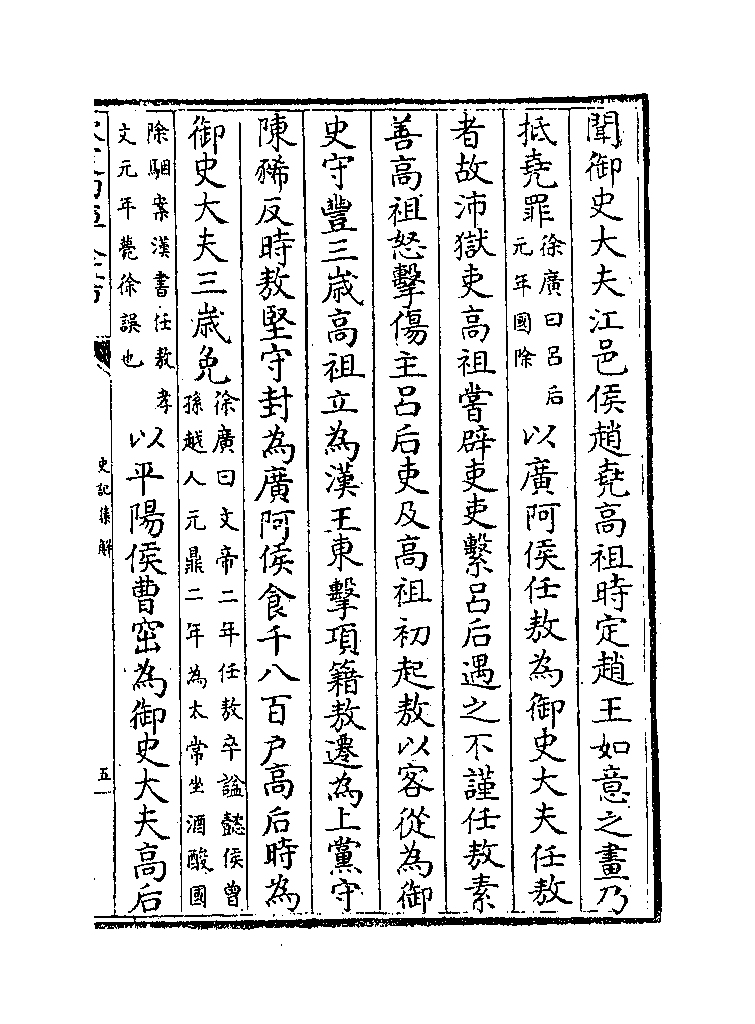 聞御史大夫江邑侯趙堯高祖時定趙王如意之畫乃
抵堯罪徐廣曰呂后元年國除以廣阿侯任敖為御史大夫任敖
者故沛獄吏高祖嘗辟吏吏繫呂后遇之不謹任敖素
善高祖怒擊傷主呂后吏及高祖初起敖以客從為御
史守豐三歲高祖立為漢王東擊項籍敖遷為上黨守
陳豨反時敖堅守封為廣阿侯食千八百户高后時為
御史大夫三歲免徐廣曰文帝二年任敖卒諡懿侯曾孫越人元鼎二年為太常坐酒酸國
除駰案漢書任敖孝文元年薨徐誤也以平陽侯曹窋為御史大夫高后
史記集解
五